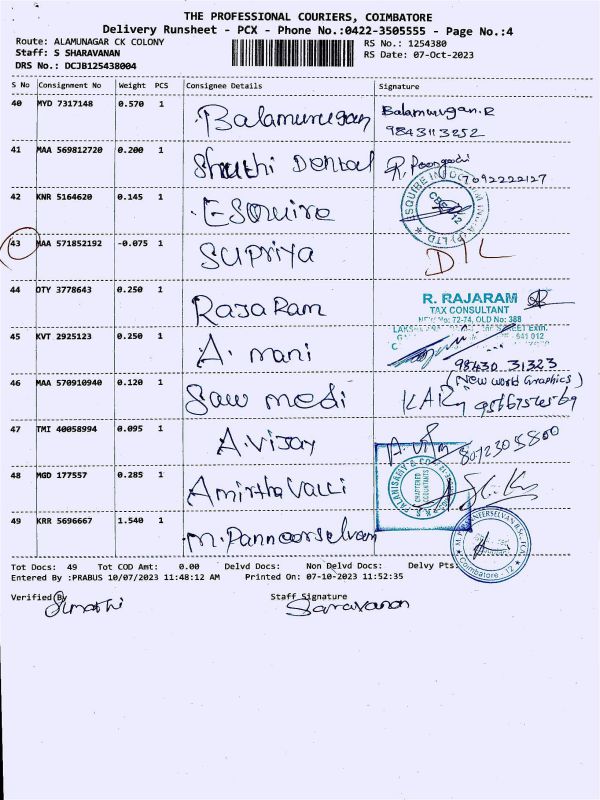 THE PROFESSIONAL COURIERS, COIMBATORE
Delivery Runsheet - PCX - Phone No.:0422-3505555 - Page No.:4
Route: ALAMUNAGAR CK COLONY
Staff: S SHARAVANAN
DRS No.: DCJB125438004
RS No.: 1254380
RS Date: 07-Oct-2023
S No Consignment No Weight PCS Consignee Details Signature
40 MYD 7317148 0.570 1 Balamurugan Balamurugan.R
9843113252
41 MAA 569812720 0.200 1 Shruthi Dental R. Poongodi
7092222127
42 KNR 5164620 0.145 1 ESquire
CBE - 12
43 MAA 571852192 -0.075 1 SUPriya D/L
44 OTY 3778643 0.250 1 RAJARAM R. RAJARAM
TAX CONSULTANT
NEW No: 72-74, OLD No: 388
641 012
45 KVT 2925123 0.250 1 A. mani
98430 31323
(New world Graphics)
46 MAA 570910940 0.120 1 Saw medi
47 TMI 40058994 0.095 1 A.Vijay
8072305800
48 MGD 177557 0.285 1 Amirthavalli
CHARTERED ACCOUNTANTS
49 KRR 5696667 1.540 1 M.Panneerselvam
Coimbatore - 12
Tot Docs: 49 Tot COD Amt: 0.00 Delvd Docs: Non Delvd Docs: Delvy Pts:
Entered By :PRABUS 10/07/2023 11:48:12 AM Printed On: 07-10-2023 11:52:35
Verified By Staff Signature
Saravanan